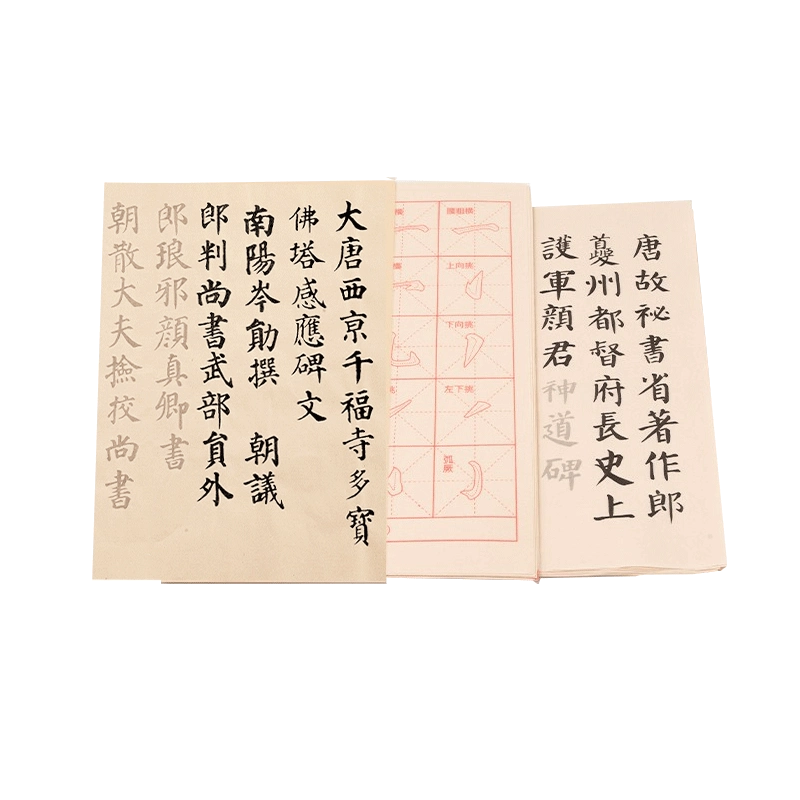 大唐西亰千福寺多寶
佛塔感應碑文
南陽岑勛撰 朝議
郎判尚書武部貟外
郎琅邪顏真卿書
朝散大夫撿挍尚書
上向
下向
左下
唐故祕書省著作郎
夔州都督府長史上
護軍顏君神道碑